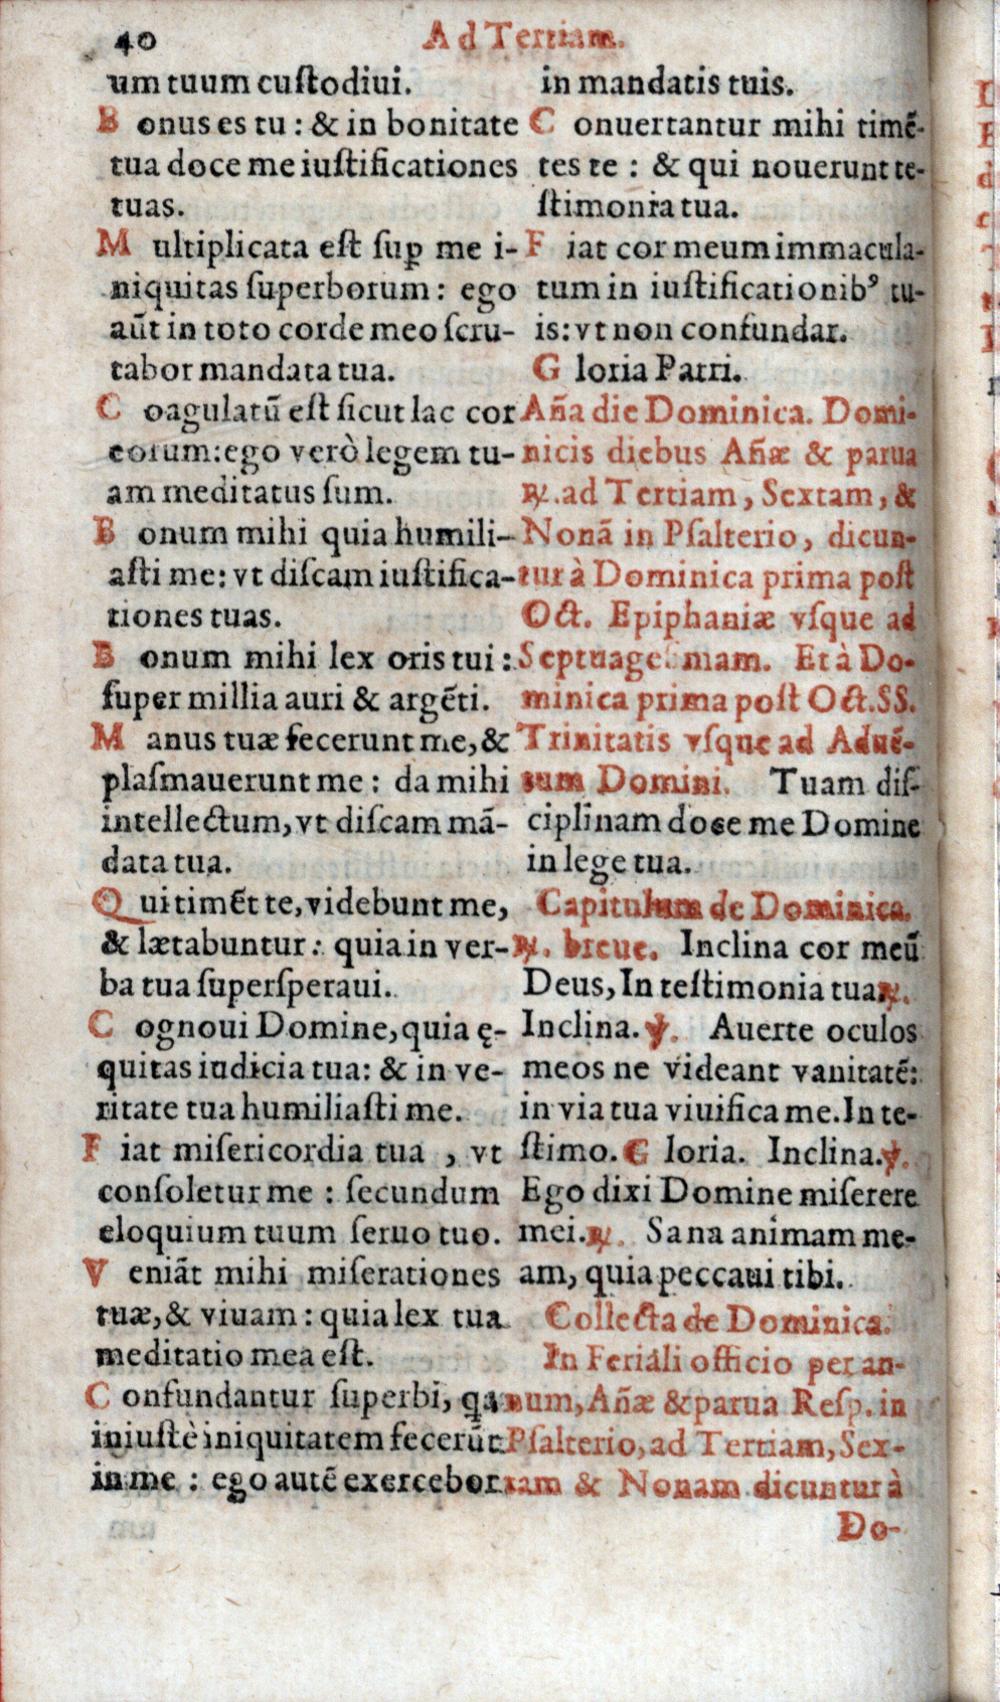 40
Ad Tertiam.
um tuum cuſtodiui.
B onus es tu : & in bonitate
tua doce me iuſtificationes
tuas.
M ultiplicata eſt ſuꝑ me i-
niquitas ſuperborum: ego
aūt in toto corde meo ſcru-
tabor mandata tua.
C oagulatū eſt ſicut lac cor
eorum:ego verò legem tu-
am meditatus ſum.
B onum mihi quia humili-
aſti me: vt diſcam iuſtifica-
tiones tuas.
B onum mihi lex oris tui :
ſuper millia auri & argēti.
M anus tuæ fecerunt me, &
plaſmauerunt me : da mihi
intellectum, vt diſcam mā-
data tua.
Q ui timēt te, videbunt me,
& lætabuntur : quia in ver-
ba tua ſuperſperaui.
C ognoui Domine, quia ę-
quitas iudicia tua: & in ve-
ritate tua humiliaſti me.
F iat miſericordia tua , vt
conſoletur me : ſecundum
eloquium tuum ſeruo tuo.
V eniāt mihi miſerationes
tuæ, & viuam : quia lex tua
meditatio mea eſt.
C onfundantur ſuperbi, qa
iniuſtè iniquitatem fecerūt
in me : ego autē exercebor
in mandatis tuis.
C onuertantur mihi timē-
tes te : & qui nouerunt te-
ſtimonia tua.
F iat cor meum immacula-
tum in iuſtificationibꝰ tu-
is: vt non confundar.
G loria Patri.
Aña die Dominica. Domi-
nicis diebus Añæ & parua
℟. ad Tertiam, Sextam, &
Nonā in Pſalterio, dicun-
tur à Dominica prima poſt
Oct. Epiphaniæ vſque ad
Septuageſimam. Et à Do-
minica prima poſt Oct. SS.
Trinitatis vſque ad Aduē-
tum Domini. Tuam diſ-
ciplinam doce me Domine
in lege tua.
Capitulum de Dominica.
℟. breue. Inclina cor meū
Deus, In teſtimonia tua ℟.
Inclina. ℣. Auerte oculos
meos ne videant vanitatē:
in via tua viuifica me. In te-
ſtimo. G loria. Inclina. ℣.
Ego dixi Domine miſerere
mei. ℟. Sana animam me-
am, quia peccaui tibi.
Collecta de Dominica.
In Feriali officio per an-
num, Añæ & parua Reſp. in
Pſalterio, ad Tertiam, Sex-
tam & Nonam dicuntur à
Do-